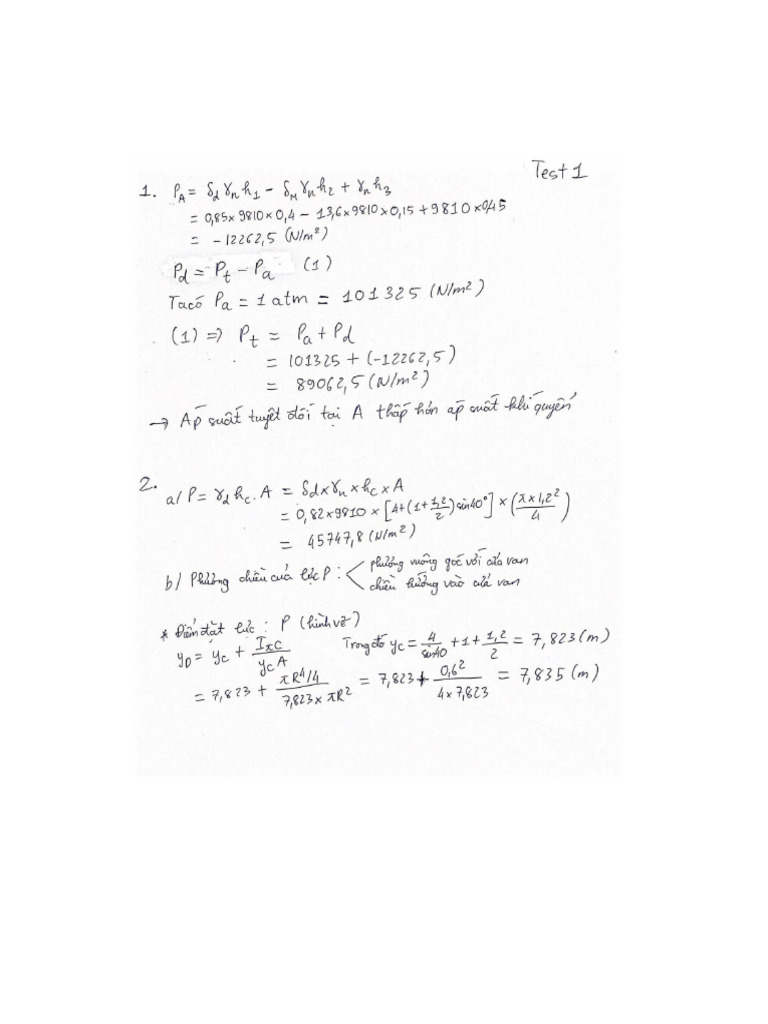 Test 1
1. P_A = δ_d γ_n h_1 - δ_M γ_n h_2 + γ_n h_3
= 0,85 × 9810 × 0,4 - 13,6 × 9810 × 0,15 + 9810 × 0,45
= -12262,5 (N/m²)
P_d = P_t - P_a (1)
Ta có P_a = 1 atm = 101325 (N/m²)
(1) => P_t = P_a + P_d
= 101325 + (-12262,5)
= 89062,5 (N/m²)
→ Áp suất tuyệt đối tại A thấp hơn áp suất khí quyển
2.
a/ P = γ_d h_c . A = δ_d × γ_n × h_c × A
= 0,82 × 9810 × [4 + (1 + 1,2/2) sin40°] × (π × 1,2²/4)
= 45747,8 (N/m²)
b/ Phương chiều của lực P : < phương vuông góc với cửa van
chiều hướng vào cửa van
* Điểm đặt lực : P (hình vẽ)
y_D = y_C + I_xC/(y_C A) Trong đó y_C = 4/sin40 + 1 + 1,2/2 = 7,823 (m)
= 7,823 + (πR⁴/4)/(7,823 × πR²) = 7,823 + 0,6²/(4 × 7,823) = 7,835 (m)